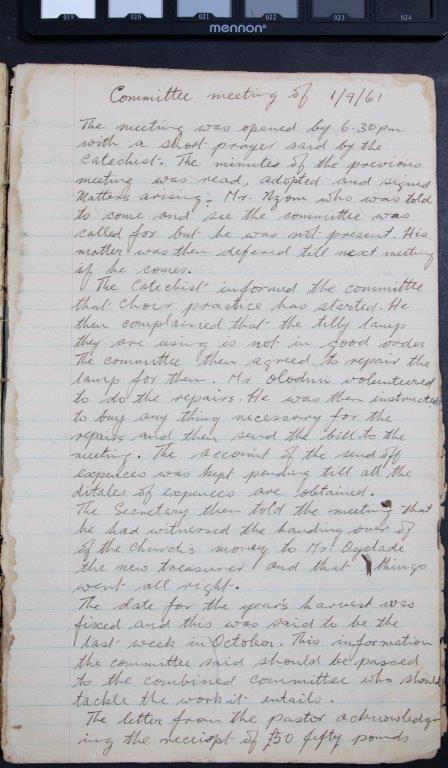 019 020 021 022 023 024
mennon®
Committee meeting of 1/9/61
The meeting was opened by 6.30pm
with a short prayer said by the
Catechist. The minutes of the previous
meeting was read, adopted and signed
Matters arising:- Mr. Nzom who was told
to come and see the committee was
called for but he was not present. His
matter was then defered till next meeting
if he comes.
The Catechist informed the committee
that Choir practice has started. He
then complained that the tilly lamps
they are using is not in good order
The committee then agreed to repair the
lamp for them. Mr Olodun volunteered
to do the repairs. He was then instructed
to buy any thing necessary for the
repairs and then send the bill to the
meeting. The account of the send off
expences was kept pending till all the
ditales of expences are obtained.
The Secretary then told the meeting that
he had witnessed the handing over of
of the Church's money to Mr. Oyelade
the new treasurer and that things
went all right.
The date for the year's harvest was
fixed and this was said to be the
last week in October. This information
the committee said should be passed
to the combined committee who should
tackle the work it entails.
The letter from the pastor acknowledg-
ing the reciept of £50 fifty pounds